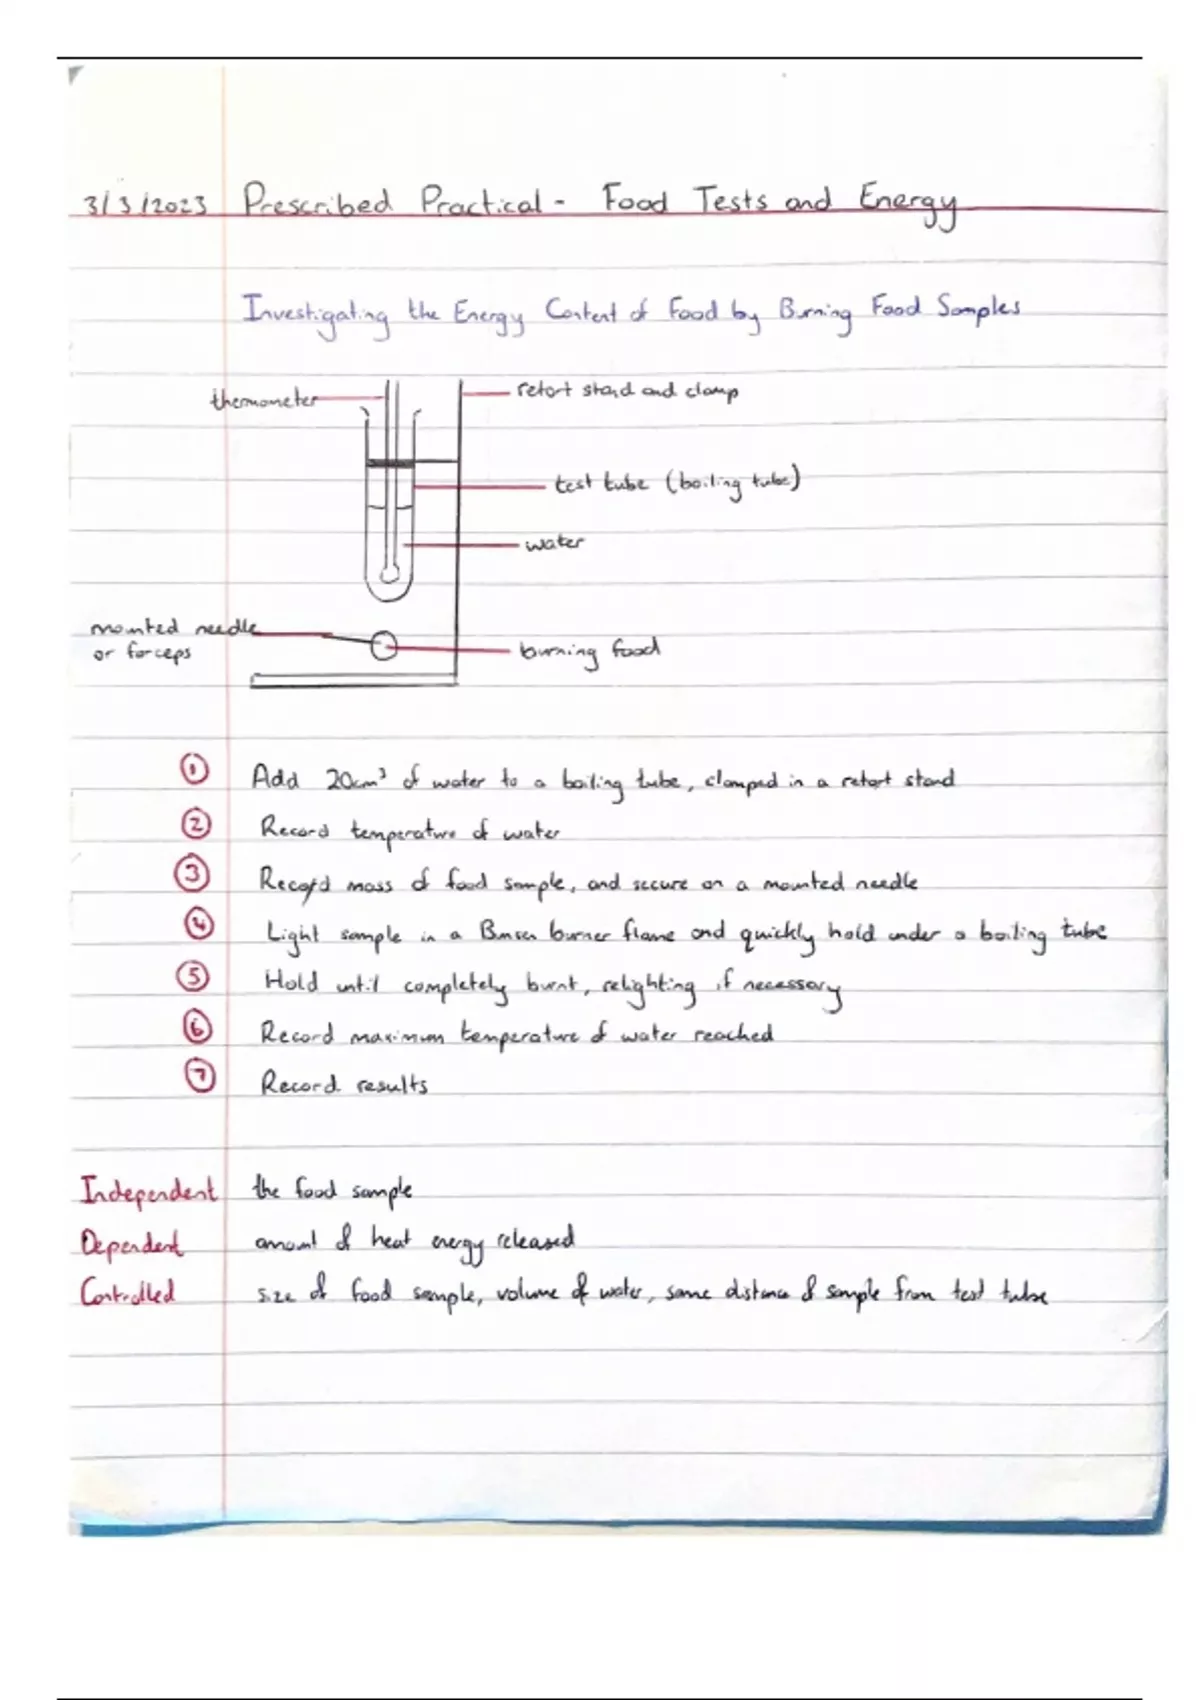 3/3/2023 Prescribed Practical - Food Tests and Energy
Investigating the Energy Content of Food by Burning Food Samples
thermometer
retort stand and clamp
test tube (boiling tube)
water
mounted needle
or forceps
burning food
1 Add 20cm³ of water to a boiling tube, clamped in a retort stand
2 Record temperature of water
3 Record mass of food sample, and secure on a mounted needle
4 Light sample in a Bunsen burner flame and quickly hold under a boiling tube
5 Hold until completely burnt, relighting if necessary
6 Record maximum temperature of water reached
7 Record results
Independent the food sample
Dependent amount of heat energy released
Controlled size of food sample, volume of water, same distance of sample from test tube